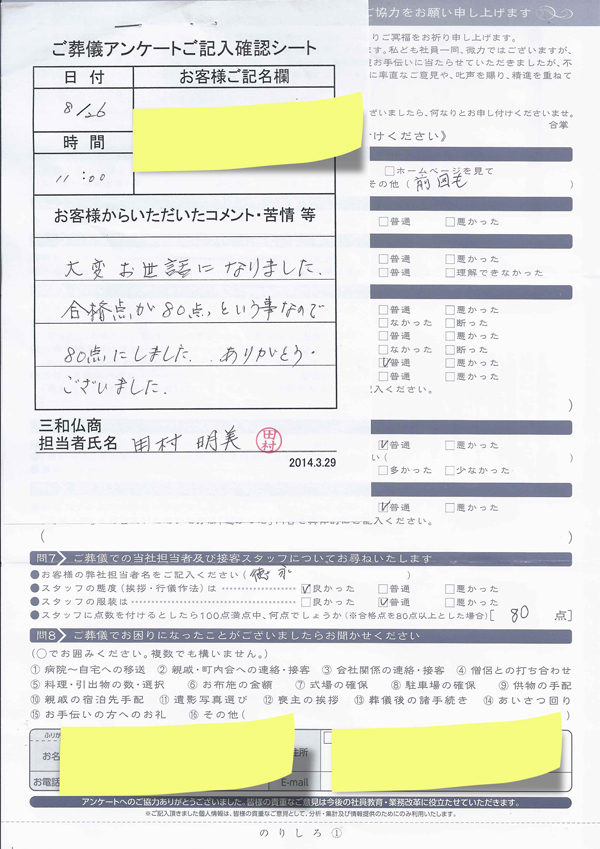 ご協力をお願い申し上げます
ご葬儀アンケートご記入確認シート
日付
お客様ご記名欄
8/26
時間
11:00
お客様からいただいたコメント・苦情 等
大変お世話になりました.
合格点が80点,という事なので
80点にしました. ありがとう・
ございました.
三和仏商
担当者氏名 田村 明美 田村
2014.3.29
りご冥福をお祈り申し上げます。
ます。私ども社員一同、微力ではございますが、
お手伝いに当たらせていただきましたが、不
に率直なご意見や、叱声を賜り、精進を重ねて
ざいましたら、何なりとお申し付けくださいませ。
合掌
付けください》
□ホームページを見て
その他( 前回も )
□普通 □悪かった
□普通 □悪かった
□普通 □理解できなかった
□普通 □悪かった
□なかった □断った
□普通 □悪かった
□なかった □断った
☑普通 □悪かった
□普通 □悪かった
記入ください。
)
☑普通 □悪かった
い( )
□多かった □少なかった
☑普通 □悪かった
記入ください。
( )
問7 ご葬儀での当社担当者及び接客スタッフについてお尋ねいたします
●お客様の弊社担当者名をご記入ください( 徳永 )
●スタッフの態度(挨拶・行儀作法)は ☑良かった □普通 □悪かった
●スタッフの服装は □良かった ☑普通 □悪かった
●スタッフに点数を付けるとしたら100点満点中、何点でしょうか(※合格点を80点以上とした場合)[ 80 点]
問8 ご葬儀でお困りになったことがございましたらお聞かせください
(○でお囲みください。複数でも構いません。)
①病院〜自宅への移送 ②親戚・町内会への連絡・接客 ③会社関係の連絡・接客 ④僧侶との打ち合わせ
⑤料理・引出物の数・選択 ⑥お布施の金額 ⑦式場の確保 ⑧駐車場の確保 ⑨供物の手配
⑩親戚の宿泊先手配 ⑪遺影写真選び ⑫喪主の挨拶 ⑬葬儀後の諸手続き ⑭あいさつ回り
⑮お手伝いの方へのお礼 ⑯その他( )
ふりが
お名
住所
お電話
E-mail
アンケートへのご協力ありがとうございました。皆様の貴重なご意見は今後の社員教育・業務改革に役立たせていただきます。
※ご記入頂きました個人情報は、皆様の貴重なご意見として、分析・集計及び情報提供のためにのみ利用いたします。
のりしろ①